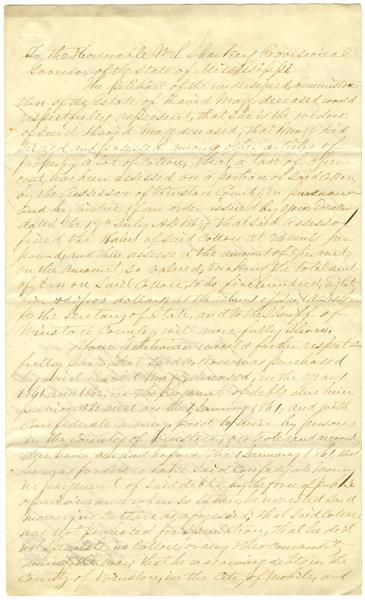 To, the Honorable W L Sharkey Provisional
Governor of the State of Mississippi
The petition of the undersigned administra
trix of the estate of David Magg deceased would
respectfully represent, that she is the widow
of said David Magg deceased, that Magg died
seized and possessed among other articles of
property a lot of Cotton, that a tax of
cent has been assessed on a portion of said Cotton
by the assessor of Winston County, in pursuance
and by virtue of an order issued by your Honor
dated the July AD 1865 that said assessor
fixed the value of said Cotton at cents per
pound, and then assessed the amount of per cent
on the amount, so valued, making the total amt
of tax on said Cotton to be five hundred, eighty
dollars, as the return of said assessor
to the Secretary of State, and to the Sheriff of
Winston County, will more fully show.
Your petitioner would further respect
fully show, that said Cotton was purchased
by said David Magg deceased, in the years
1861 and 1862, in the payment of debts due him
previous to the first of January 1861, and with
Confederate money paid to him by persons
in the County of Winston, on notes and accounts
due him on and before the 1 January 1861 that
he was forced to take said Confederate money
in payment of said debts, by the force of public
opinion, and when so taken, he invested said
money in Cotton as aforesaid, that said Cotton
was not purchased for speculation, that he did
not speculate in Cotton or any other commodity
during the war, that he was owing debts in the
County of Winston, in the City of Mobile, and